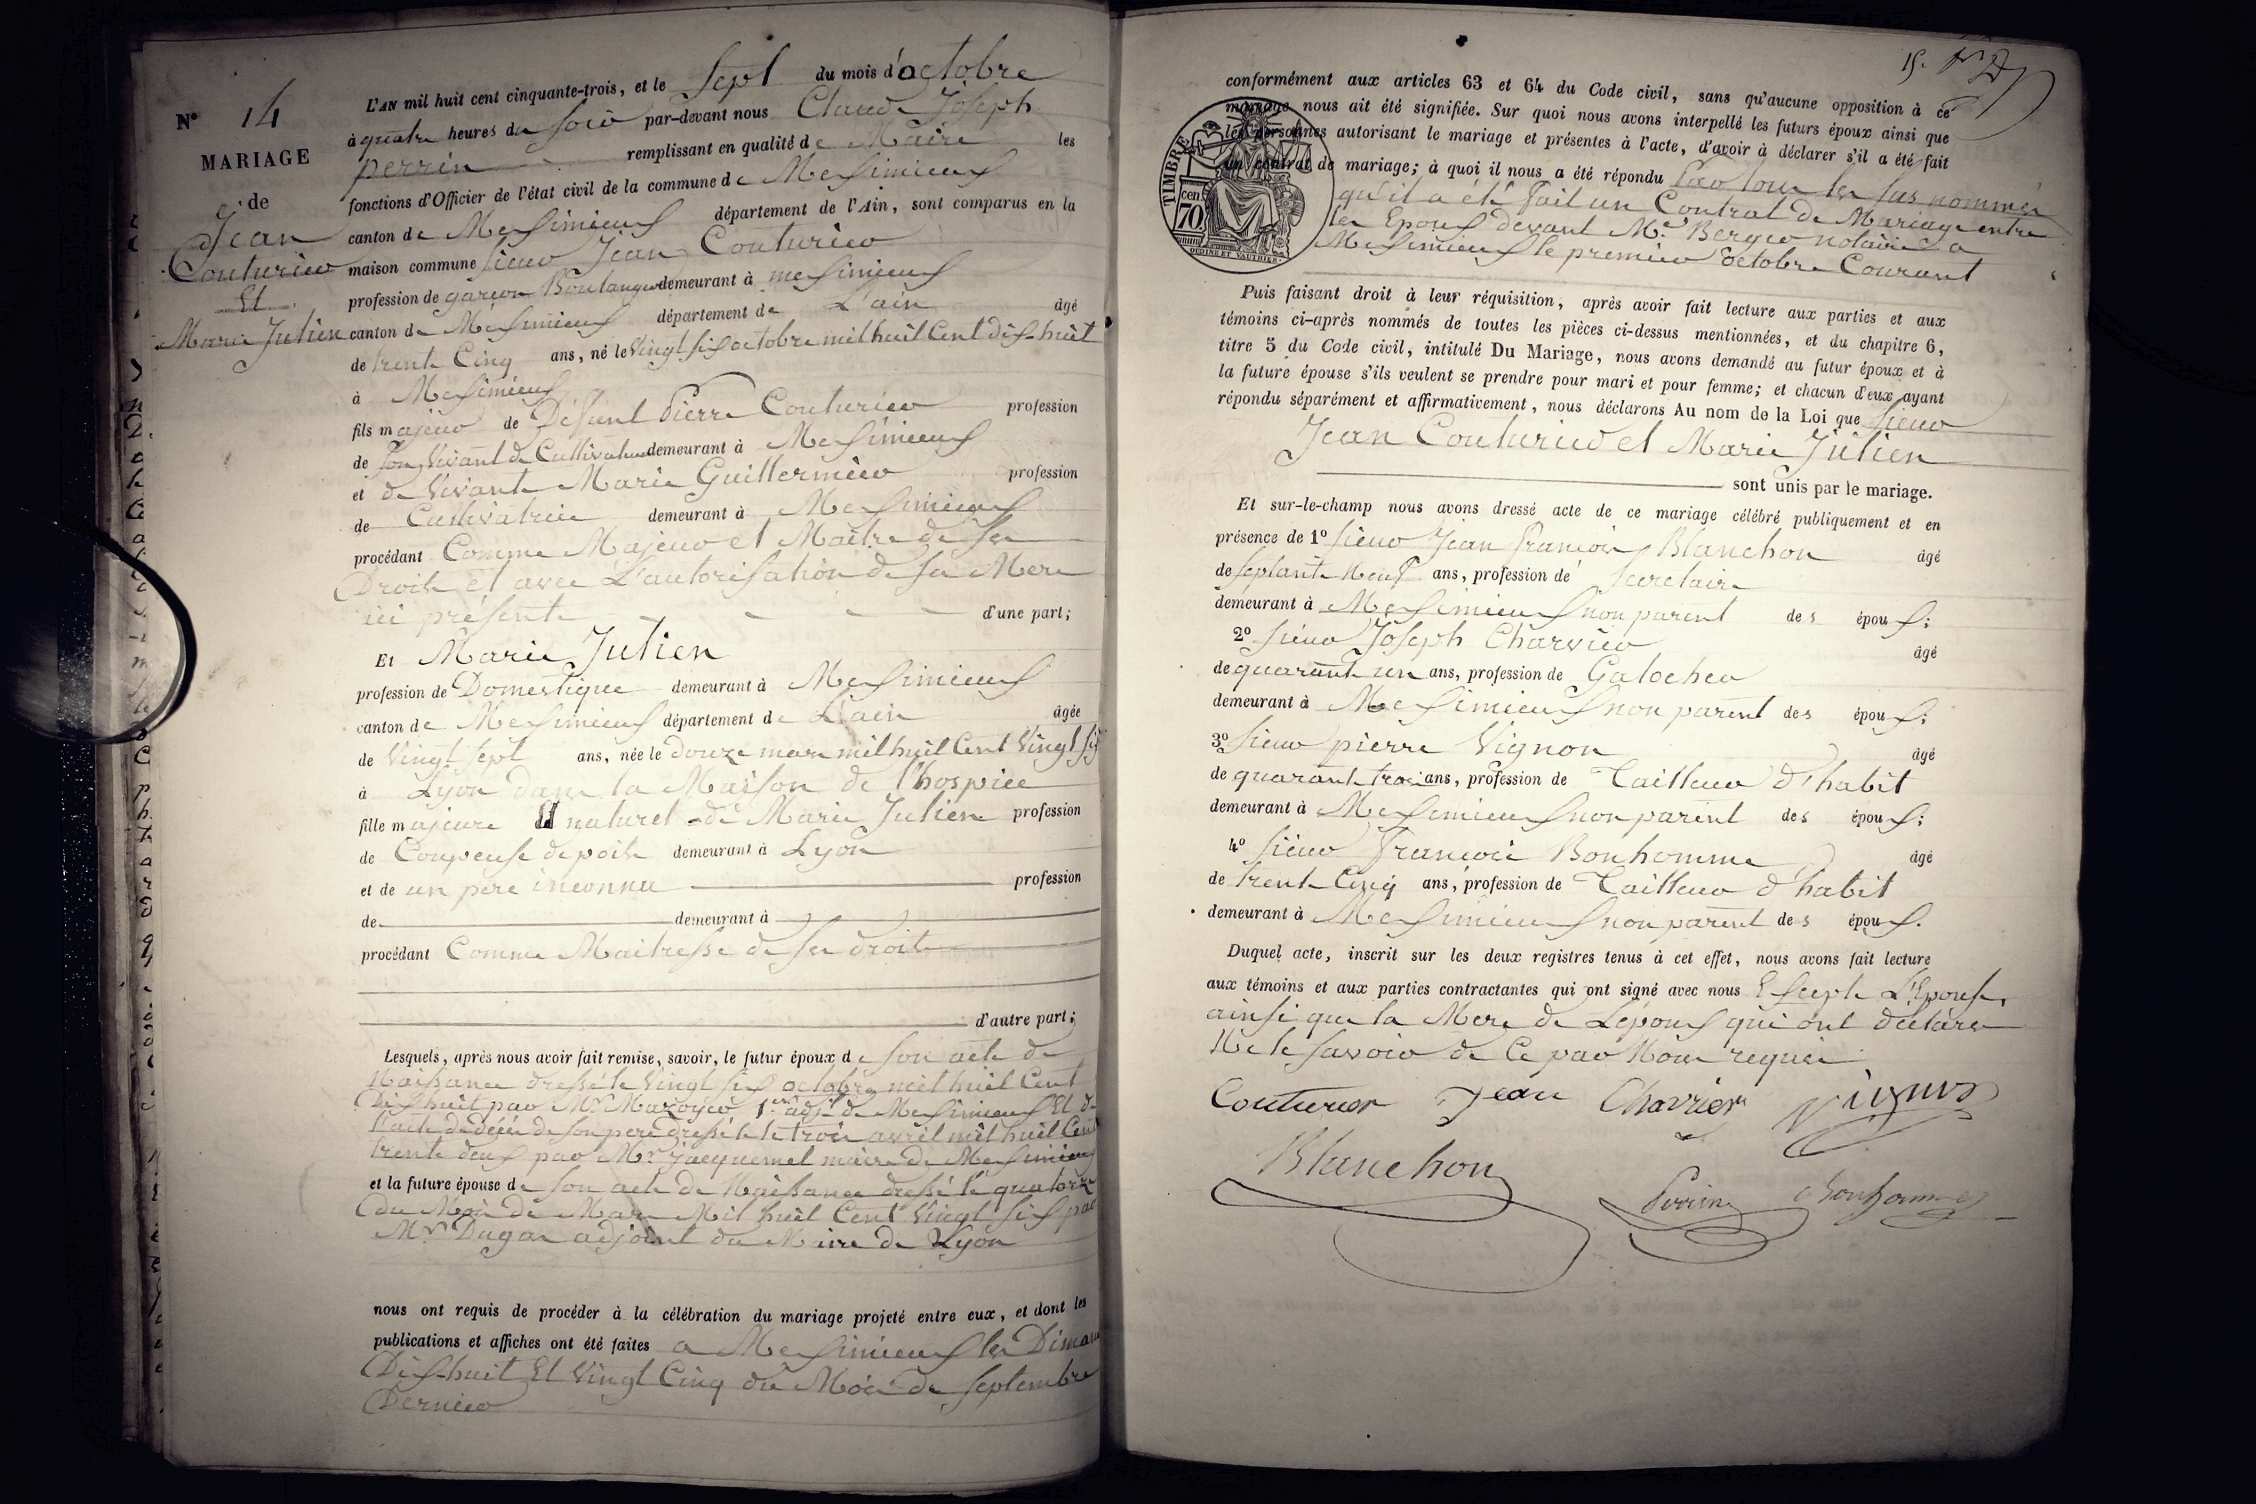 N° 14
MARIAGE
de
Jean
Couturier
Et
Marie Julien
L'AN mil huit cent cinquante-trois, et le Sept du mois d'octobre
à quatre heures du soir par-devant nous Claude Joseph
perrin remplissant en qualité de Maire les
fonctions d'Officier de l'état civil de la commune de Messimieux
canton de Messimieux département de l'Ain, sont comparus en la
maison commune sieur Jean Couturier
profession de garçon Boulanger demeurant à messimieux
canton de Messimieux département de L'ain âgé
de trente Cinq ans, né le vingt six octobre mil huit Cent dix-huit
à Messimieux
fils majeur de Défunt Pierre Couturier profession
de Son Vivant de Cultivateur demeurant à Messimieux
et de Vivante Marie Guillermier profession
de Cultivatrice demeurant à Messimieux
procédant Comme Majeur et Maître de ses
Droits et avec L'autorisation de sa Mere
ici présente d'une part;
Et Marie Julien
profession de Domestique demeurant à Messimieux
canton de Messimieux département de L'ain âgée
de Vingt sept ans, née le douze mars mil huit Cent Vingt six
à Lyon dans la Maison de l'hospice
fille majeure Et naturel de Marie Julien profession
de Coupeuse de poils demeurant à Lyon
et de un pere inconnu profession
de demeurant à
procédant Comme Maitresse de ses droits
d'autre part;
Lesquels, après nous avoir fait remise, savoir, le futur époux de son acte de
Naissance dressé le Vingt six octobre mil huit Cent
Dix huit par Mr 1er adjt de Messimieux Et de
l'acte de décès de son pere dressé le trois avril mil huit Cent
trente deux par Mr Jacquemet maire de Messimieux
et la future épouse de son acte de Naissance dressé le quatorze
du Mois de Mars Mil huit Cent Vingt six par
Mr Dugas adjoint du Maire de Lyon
nous ont requis de procéder à la célébration du mariage projeté entre eux, et dont les
publications et affiches ont été faites a Messimieux les
Dix-huit Et Vingt Cinq du Mois de septembre
Dernier
15.
conformément aux articles 63 et 64 du Code civil, sans qu'aucune opposition à ce
mariage nous ait été signifiée. Sur quoi nous avons interpellé les futurs époux ainsi que
les personnes autorisant le mariage et présentes à l'acte, d'avoir à déclarer s'il a été fait
un contrat de mariage; à quoi il nous a été répondu Par tous les sus nommés
qu'il a été fait un Contrat de Mariage entre
les Epoux devant Me Berger notaire a
Messimieux le premier octobre Courant
TIMBRE
70 cen
Puis faisant droit à leur réquisition, après avoir fait lecture aux parties et aux
témoins ci-après nommés de toutes les pièces ci-dessus mentionnées, et du chapitre 6,
titre 5 du Code civil, intitulé Du Mariage, nous avons demandé au futur époux et à
la future épouse s'ils veulent se prendre pour mari et pour femme; et chacun d'eux ayant
répondu séparément et affirmativement, nous déclarons Au nom de la Loi que sieur
Jean Couturier et Marie Julien
sont unis par le mariage.
Et sur-le-champ nous avons dressé acte de ce mariage célébré publiquement et en
présence de 1° sieur Jean françois Blanchon âgé
de septante Neuf ans, profession de Secretaire
demeurant à Messimieux non parent des époux;
2° sieur Joseph Charvier âgé
de quarante un ans, profession de Galocher
demeurant à Messimieux non parent des époux;
3° sieur pierre Vignon âgé
de quarante trois ans, profession de Tailleur d'habit
demeurant à Messimieux non parent des époux;
4° sieur François Bonhomme âgé
de trente Cinq ans, profession de Tailleur d'habit
demeurant à Messimieux non parent des époux.
Duquel acte, inscrit sur les deux registres tenus à cet effet, nous avons fait lecture
aux témoins et aux parties contractantes qui ont signé avec nous Excepte L'Epouse,
ainsi que la Mere de Lépoux qui ont déclaré
Ne le savoir de Ce par Nous requis
Couturier Jean Charvier
Blanchon Perrin Bonhomme